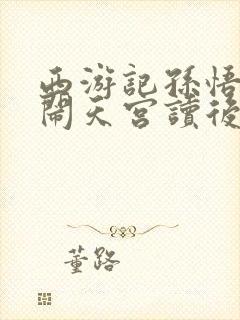 西游記孫悟
鬧天宮讀後
董路